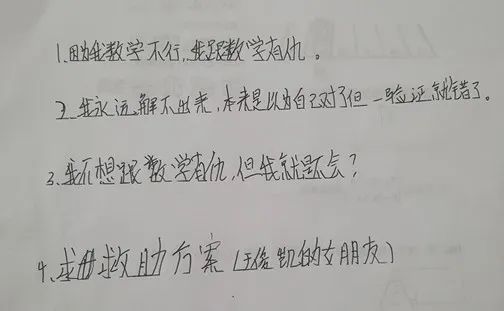 1.因为我数学不行,我跟数学有仇。
2.我永远解不出来,本来是以为自己对了但一验证就错了。
3.我不想跟数学有仇,但我就是不会?
4.求救助方案(王俊凯的女朋友)